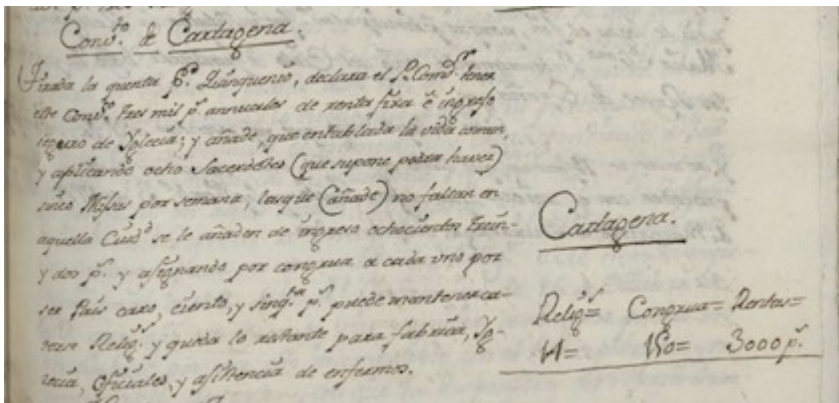 Conv.to de Cartagena
Tirada la quenta p.r Quinquenio, declara el P. Comd.r tener
este Conv.to tres mil p.s annuales de renta fixa é ingreso
seguro de Yglecia; y añade, que entablada la vida comun,
y aplicando ocho Sacerdotes (que supone podra haver)
sinco Missas por semana, lasque (añade) no faltan en
aquella Ciud.d se le añaden de ingreso ochocientos trein-
y dos p.s y asignando por congrua a cada vno por
ser País caro, ciento, y sinq.ta p.s puede mantener ca-
torse Relig.s y queda lo restante para fabrica, Yg-
lecia, Oficiales, y asistencia de enfermos.
Cartagena.
Relig.s= Congrua= Rentas=
14= 150= 3000 p.s